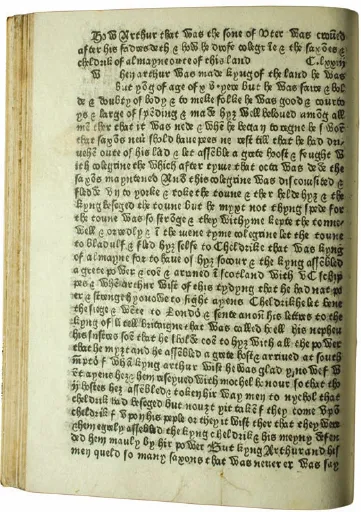 How Arthur that was the sone of Vter was crouned
after his fadws deth & how he drofe colegrine & the saxoes &
cheldrik of almayne oute of this land C.lxxiij
W hen arthur was made kyng of the land he was
but yong of age of xv. yere but he was faire & bold
de & douhty of body & to meke folke he was good & courto
ys & large of spending & made hym wel beloued among all
men ther that it was nede & when he began to regne he swor
that saxons ner shold haue pees ne rest till that he had dri
uehen oute of his lad & let assemble a grete hoost & feught with
with colegrine the which after tyme that octa was dede the
saxons mayntened And this colegrine was discomfited &
fledde vn to yorke & toke the toune & ther helde hym & the
kyng beseged the toune but he myght not thyng spede for
the toune was so stronge & they withyn kepte the toune
well & orwdly & in the mene tyme colegrine let the toune
to bladulf & fled hym selfe to Cheldrike that was kyng
of almayne for to haue of hym socour & the kyng assembled
a grete power & com & ariued in scotland with
& when arthur wist of this tydyng that he had not pow
er & strength ynowe to fight ayens Cheldrik he let bene
the siege & wente to London & sente anon his letters to the
kyng of litell britaigne that was called hoell his nepheu
his susters sone that he shold come to hym with all the power
that he myht and he assembled a grete hoste & arriued at south
mpton & whan kyng arthur wist he was glad ynow
ayens hem & hem resceyued with mochel honour so that tho
ij hostes hem assembled & token hir way men to nychol that
cheldrik had beseged but nouzt yit taken & they come vpon
cheldrik & vpon his peple or they it wist ther that they were
& hem egrely assailled the kyng cheldrik & his meyny defen
ded hem manly by hir power But kyng Arthur and his
men queld so many saxons that was neuer er was say